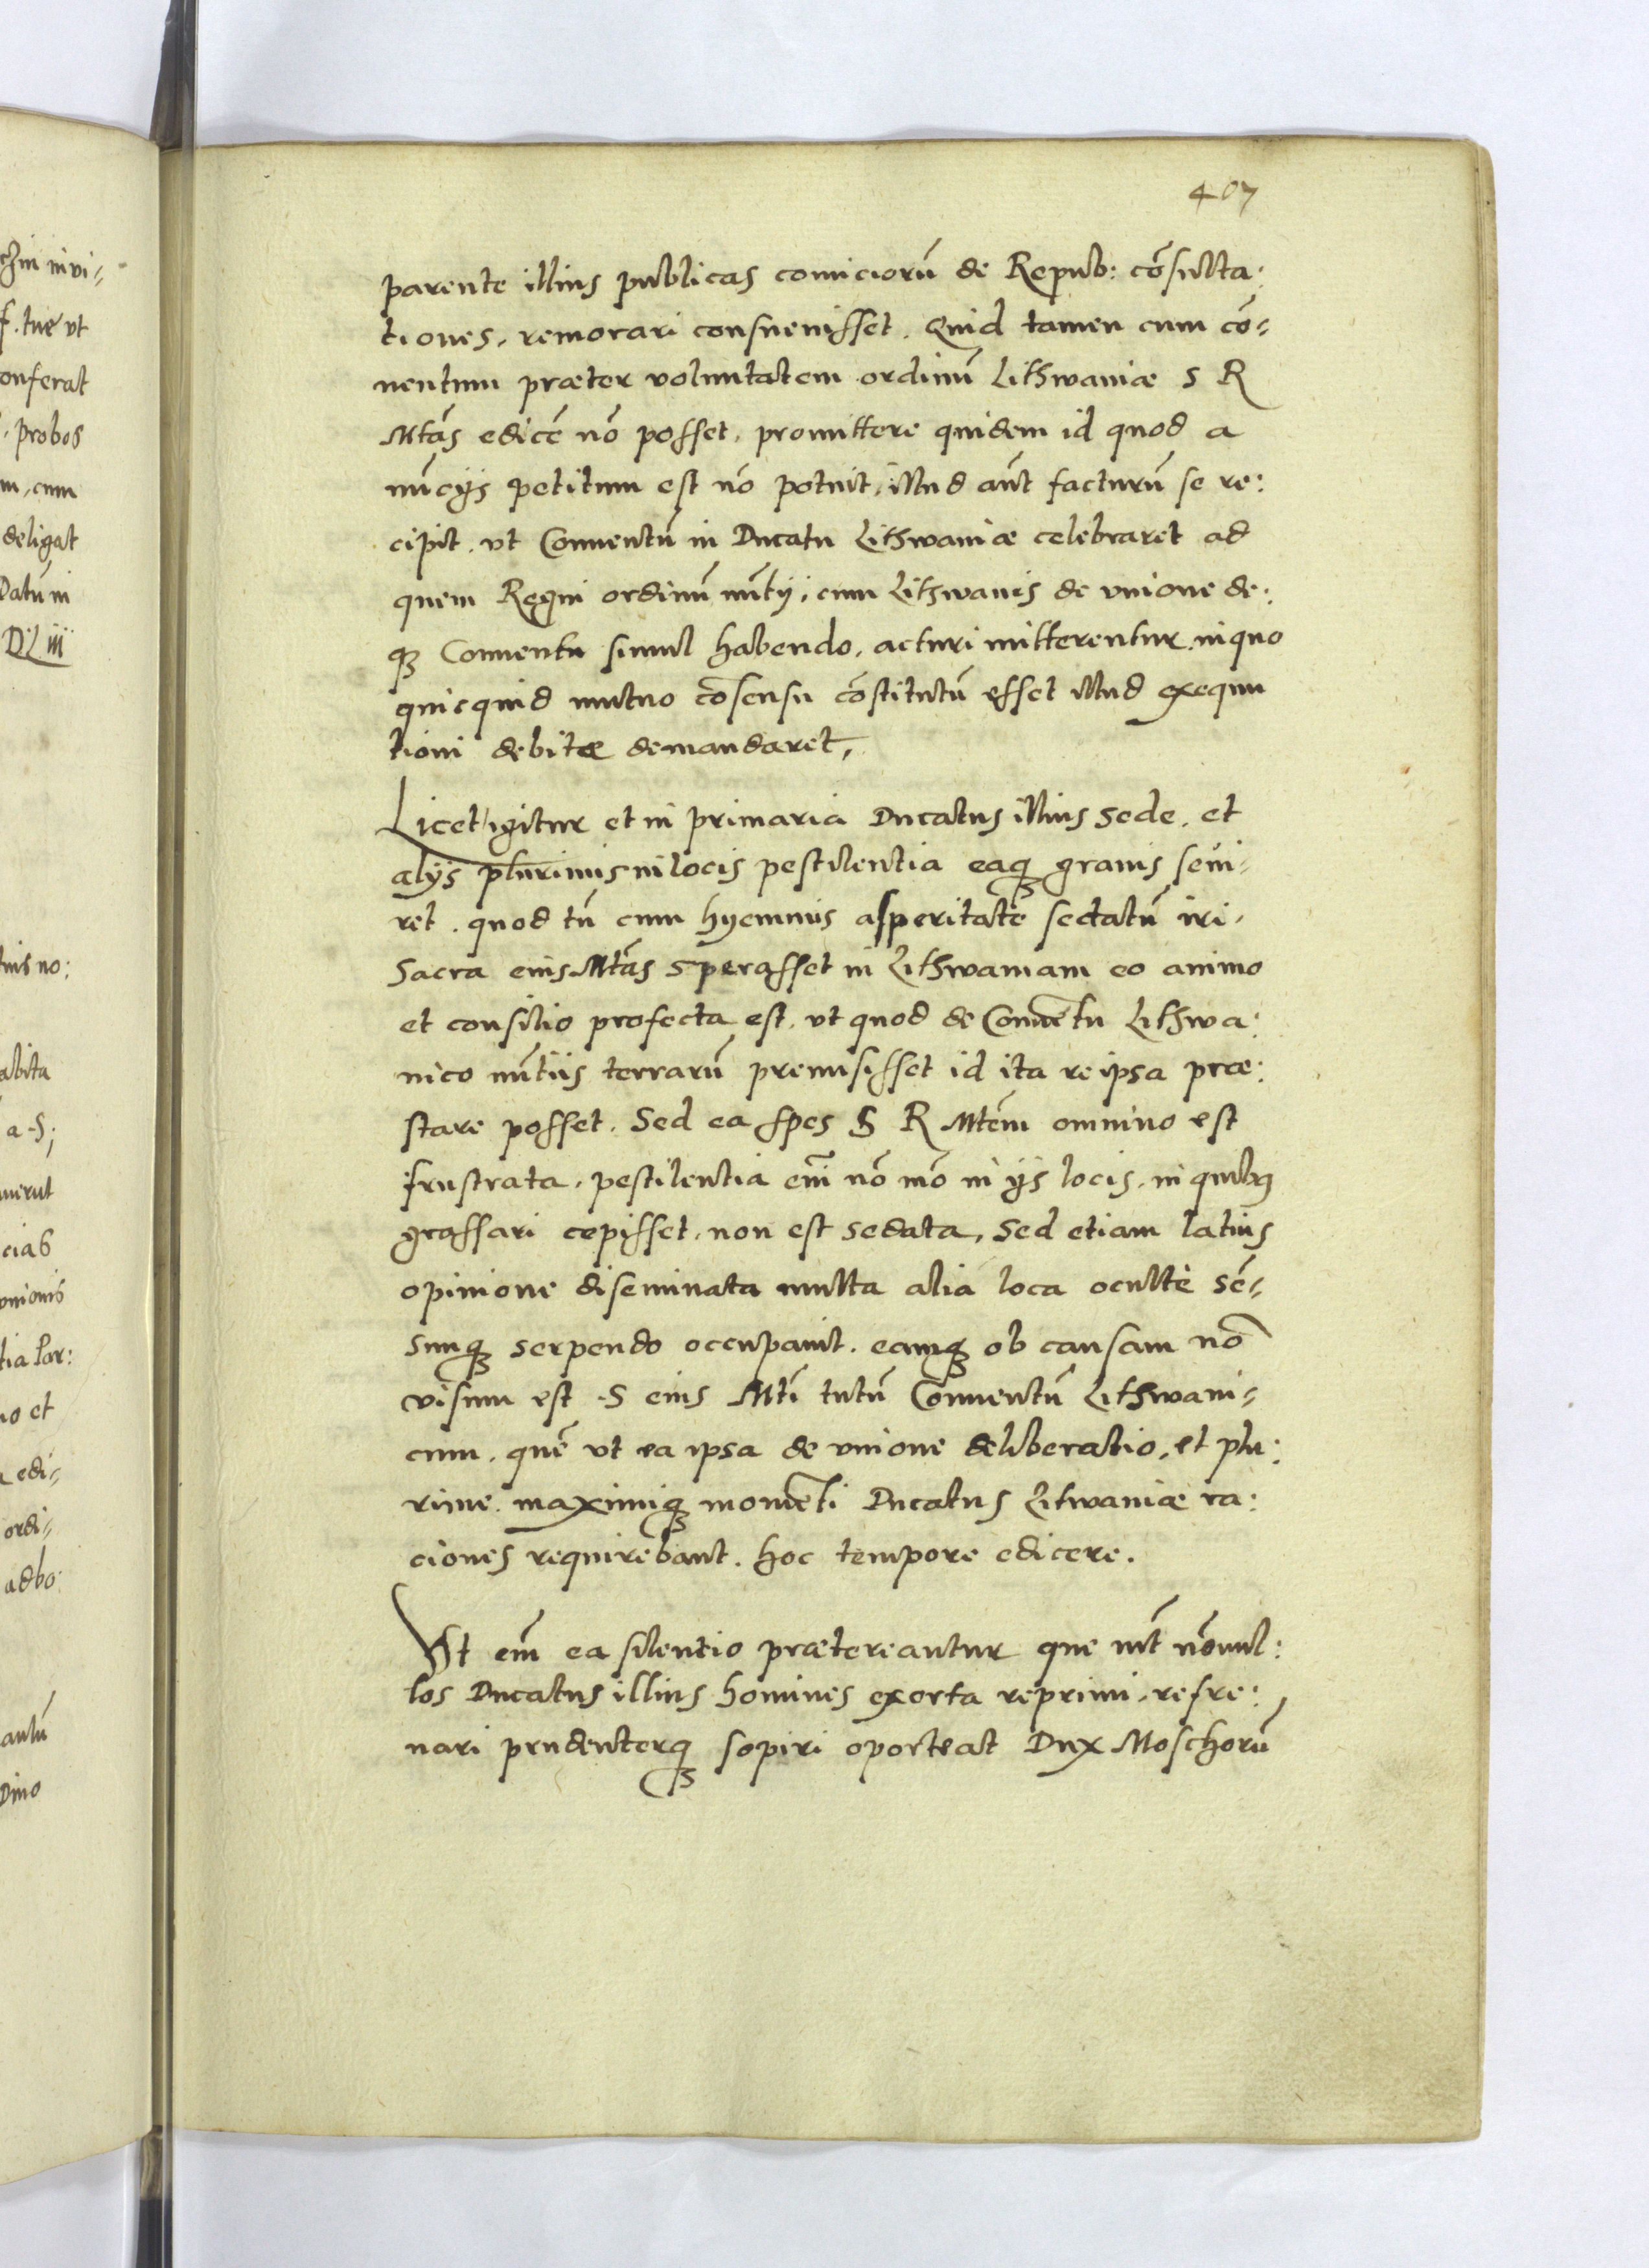 407
parente illius publicas comiciorū de Repub: cōsulta:
tiones, remorari consueuisset. Quid tamen cum cō=
uentum præter voluntatem ordinū Lithwaniæ S R
Mtās edicē nō posset, promittere quidem id quod a
nūcijs petitum est nō potuit, illud aūt facturū se re:
cipit. vt Conuentū in Ducatu Lithwaniæ celebraret ad
quem Regni ordinū nūtij, cum Lithwanis de vnione de:
qꝫ Conuentu simul habendo, acturi mitterentur. in quo
quicquid mutuo cōsensu cōstitutū esset illud exequu
tioni debitæ demandaret,
Licet igitur et in primaria Ducatus illius sede, et
alijs plurimis in locis pestilentia eaqꝫ grauis seui=
ret. quod tū cum hyemnis asperitate sedatū iri,
Sacra eius Mtās sperasset in Lithwaniam eo animo
et consilio profecta est, vt quod de Conuētu Lithwa:
nico nūtiis terrarū premisisset id ita re ipsa præ:
stare posset. Sed ea spes S R Mtēm omnino est
frustrata, pestilentia eīm nō mō in ijs locis, in quibꝫ
grassari cepisset, non est sedata, Sed etiam latius
opinione diseminata multa alia loca ocultè sē=
simqꝫ serpendo occupauit. eamqꝫ ob causam nō
visum est S eius Mtī tutū Conuentū Lithwani=
cum, quē vt ea ipsa de vnione deliberatio, et plu:
rime maximiqꝫ momēti Ducatus Litwaniæ ra:
ciones requirebant. hoc tempore edicere.
Vt eīm ea silentio prætereantur que inť nōnul:
los Ducatus illius homines exorta reprimi, refre:
nari prudenterqꝫ sopiri oporteat Dux Moschorū